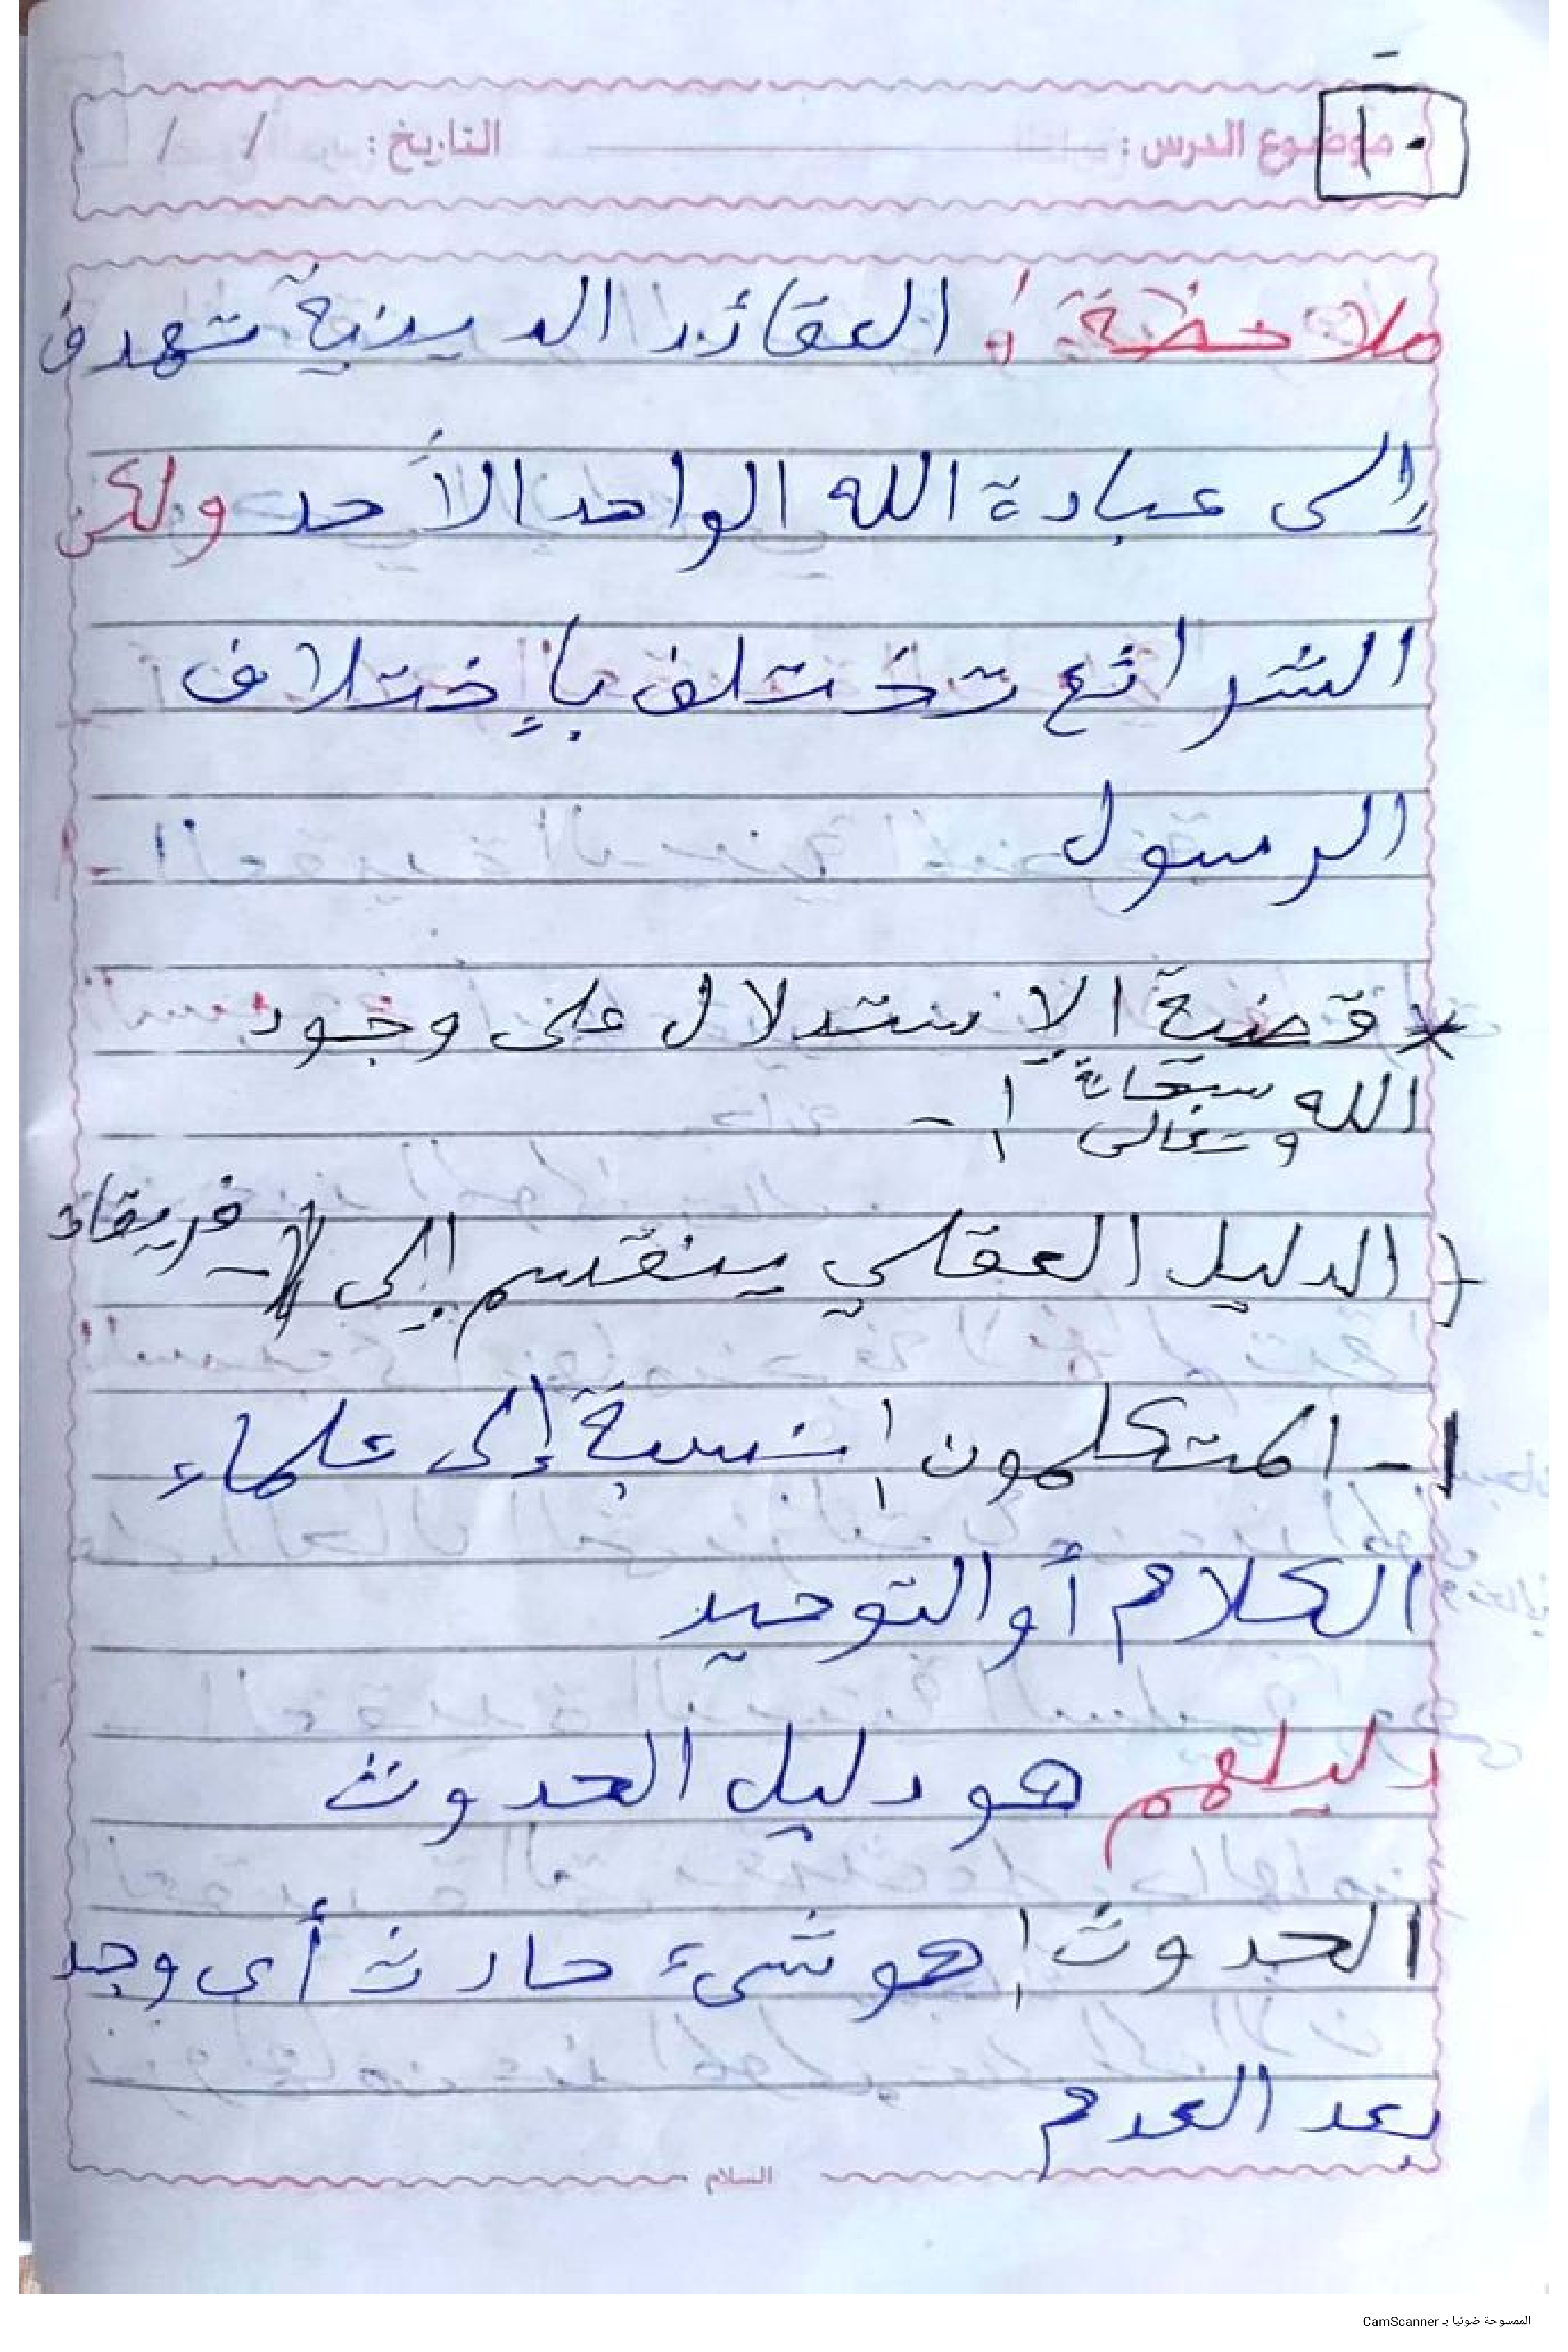 ١٠
موضوع الدرس : التاريخ : / /
ملاحضة : العقائد الدينية تهدف
إلى عبادة الله الواحد الأحد ولكن
الشرائع تختلف بإختلاف
الرسول
* قضية الإستدلال على وجود
الله سبحانة وتعالى :-
الدليل العقلي ينقسم إلى :- فريقان
١- المتكلمون : نسبة إلى علماء
الكلام أو التوحيد
دليلهم هو دليل الحدوث
الحدوث : هو شيء حادث أي وجد
بعد العدم
السلام
الممسوحة ضوئيا بـ CamScanner